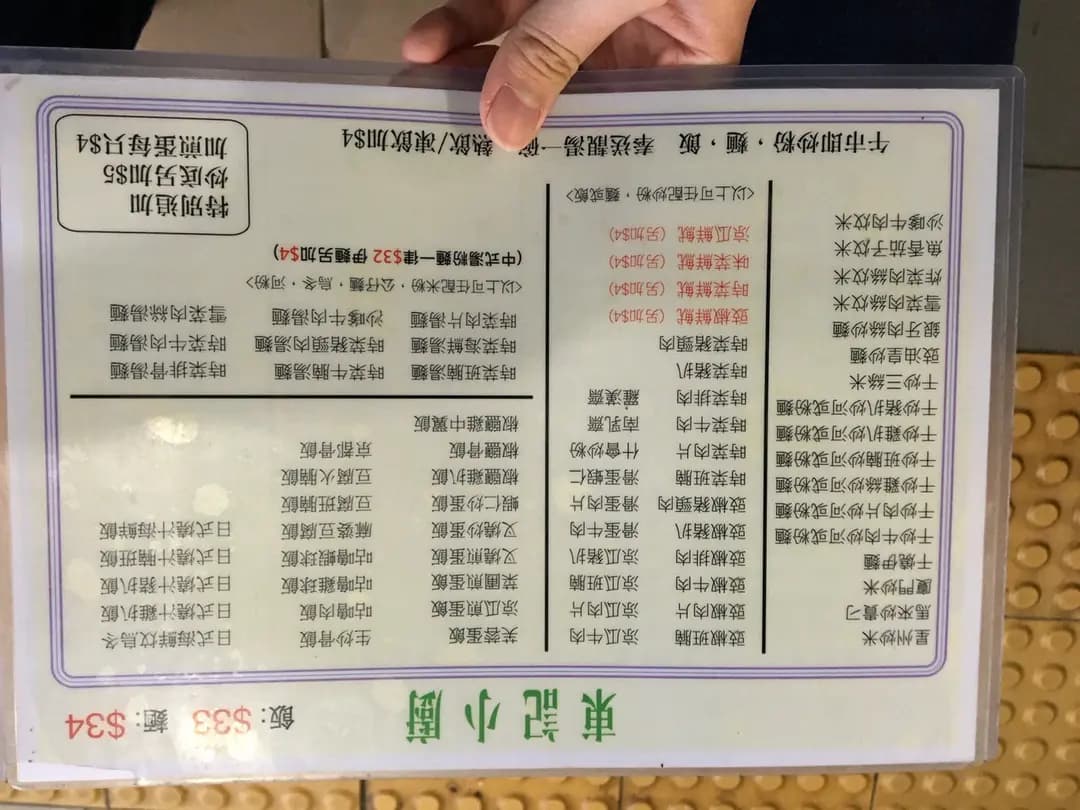 東記小廚
飯:$33 麵:$34
星州炒米
馬來炒貴刁
廈門炒米
干燒伊麵
干炒牛肉炒河或粉麵
干炒肉片炒河或粉麵
干炒雞絲炒河或粉麵
干炒班腩炒河或粉麵
干炒雞扒炒河或粉麵
干炒豬扒炒河或粉麵
干炒三絲米
豉油皇炒麵
銀牙肉絲炒麵
雪菜肉絲炆米
炸菜肉絲炆米
魚香茄子炆米
沙嗲牛肉炆米
豉椒班腩 涼瓜牛肉
豉椒肉片 涼瓜肉片
豉椒牛肉 涼瓜班腩
豉椒排肉 涼瓜豬扒
豉椒豬扒 滑蛋牛肉
豉椒豬頸肉 滑蛋肉片
時菜班腩 滑蛋蝦仁
時菜肉片 什會炒粉
時菜牛肉 南乳齋
時菜排肉 羅漢齋
時菜豬扒
時菜豬頸肉
豉椒鮮魷 (另加$4)
時菜鮮魷 (另加$4)
味菜鮮魷 (另加$4)
涼瓜鮮魷 (另加$4)
<以上可任配炒粉,麵或飯>
芙蓉蛋飯 生炒骨飯 日式海鮮炆烏冬
涼瓜煎蛋飯 咕嚕肉飯 日式燒汁雞扒飯
菜圃煎蛋飯 咕嚕雞球飯 日式燒汁豬扒飯
叉燒煎蛋飯 咕嚕蝦球飯 日式燒汁腩班飯
叉燒炒蛋飯 麻婆豆腐飯 日式燒汁海鮮飯
蝦仁炒蛋飯 豆腐班腩飯
椒鹽雞扒飯 豆腐火腩飯
椒鹽骨飯 京都骨飯
椒鹽雞中翼飯
時菜班腩湯麵 時菜牛腩湯麵 時菜排骨湯麵
時菜海鮮湯麵 時菜豬頸肉湯麵 時菜牛肉湯麵
時菜肉片湯麵 沙嗲牛肉湯麵 雪菜肉絲湯麵
<以上可任配粉米,公仔麵,烏冬,河粉>
(中式湯粉麵一律$32 伊麵另加$4)
特別追加
炒底另加$5
加煎蛋每只$4
午市即炒粉,麵,飯 奉送靚湯一碗 熱飲/凍飲加$4